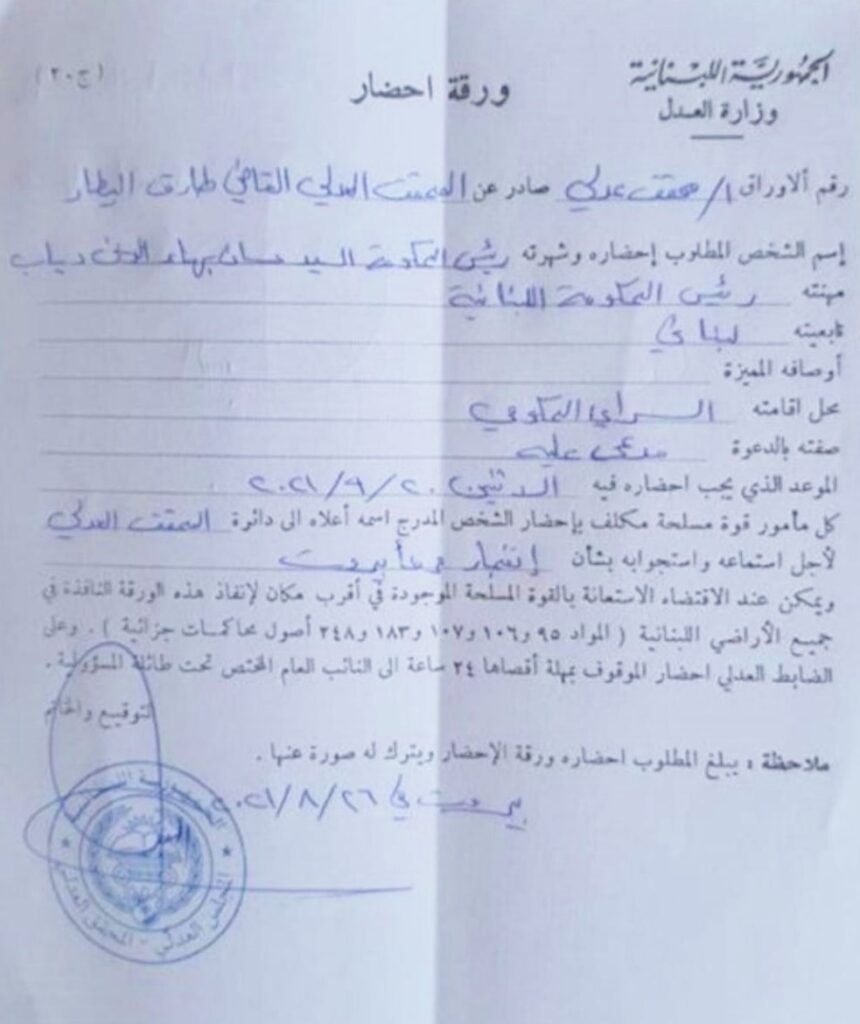 الجمهورية اللبنانية
وزارة العدل
ورقة احضار
(ج ٢٠)
رقم ألاوراق ١/محقق عدلي صادر عن المحقق العدلي القاضي طارق البيطار
إسم الشخص المطلوب إحضاره وشهرته رئيس الحكومة السيد حسان بهاء الدين دياب
مهنته رئيس الحكومة اللبنانية
تابعيته لبناني
أوصافه المميزة
محل اقامته السراي الحكومي
صفته بالدعوة مدعى عليه
الموعد الذي يجب احضاره فيه الاثنين ٢٠٢١/٩/٢٠
كل مأمور قوة مسلحة مكلف بإحضار الشخص المدرج اسمه أعلاه الى دائرة المحقق العدلي
لأجل استماعه واستجوابه بشأن إنفجار مرفأ بيروت
ويمكن عند الاقتضاء الاستعانة بالقوة المسلحة الموجودة في أقرب مكان لإنفاذ هذه الورقة النافذة في
جميع الأراضي اللبنانية ( المواد ٩٥ و١٠٦ و١٠٧ و١٨٣ و٢٤٨ أصول محاكمات جزائية ) . وعلى
الضابط العدلي احضار الموقوف بمهلة أقصاها ٢٤ ساعة الى النائب العام المختص تحت طائلة المسؤولية .
التوقيع والخاتم
ملاحظة : يبلغ المطلوب احضاره ورقة الإحضار ويترك له صورة عنها .
بيروت في ٢٠٢١/٨/٢٦
الجمهورية اللبنانية
العدل
المجلس العدلي - المحقق العدلي